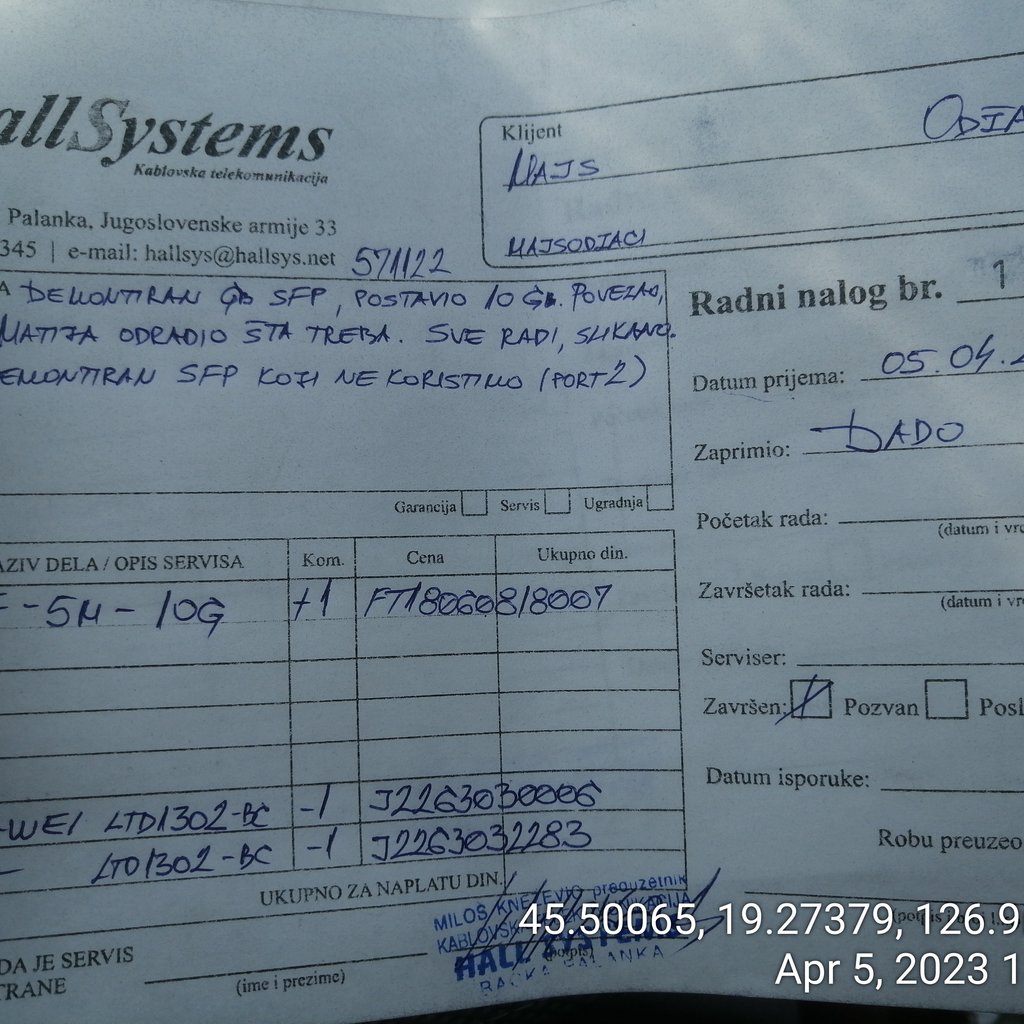 allSystems
Kablovska telekomunikacija
Palanka, Jugoslovenske armije 33
345 | e-mail: hallsys@hallsys.net
571122
Klijent
ODIA
MAJS
MAJSODJACI
A DEMONTIRAN Gb SFP, POSTAVIO 10 Gb. POVEZAO,
MATIJA ODRADIO ŠTA TREBA. SVE RADI, SLIKANO.
EMONTIRAN SFP KOJI NE KORISTIMO (PORT 2)
Garancija Servis Ugradnja
Radni nalog br. 1
Datum prijema: 05.04.2
Zaprimio: DADO
Početak rada:
(datum i vre
Završetak rada:
(datum i vre
Serviser:
Završen: Pozvan Posl
Datum isporuke:
Robu preuzeo
AZIV DELA / OPIS SERVISA Kom. Cena Ukupno din.
F-5M-10G +1 FT18060818007
-WEI LTD1302-BC -1 J2263030006
- LTD1302-BC -1 J2263032283
UKUPNO ZA NAPLATU DIN.
DA JE SERVIS
TRANE
(ime i prezime)
(potpis)
MILOŠ KNEŽEVIĆ preduzetnik
HALL SYSTEMS
BAČKA PALANKA
45.50065, 19.27379, 126.9
Apr 5, 2023 1